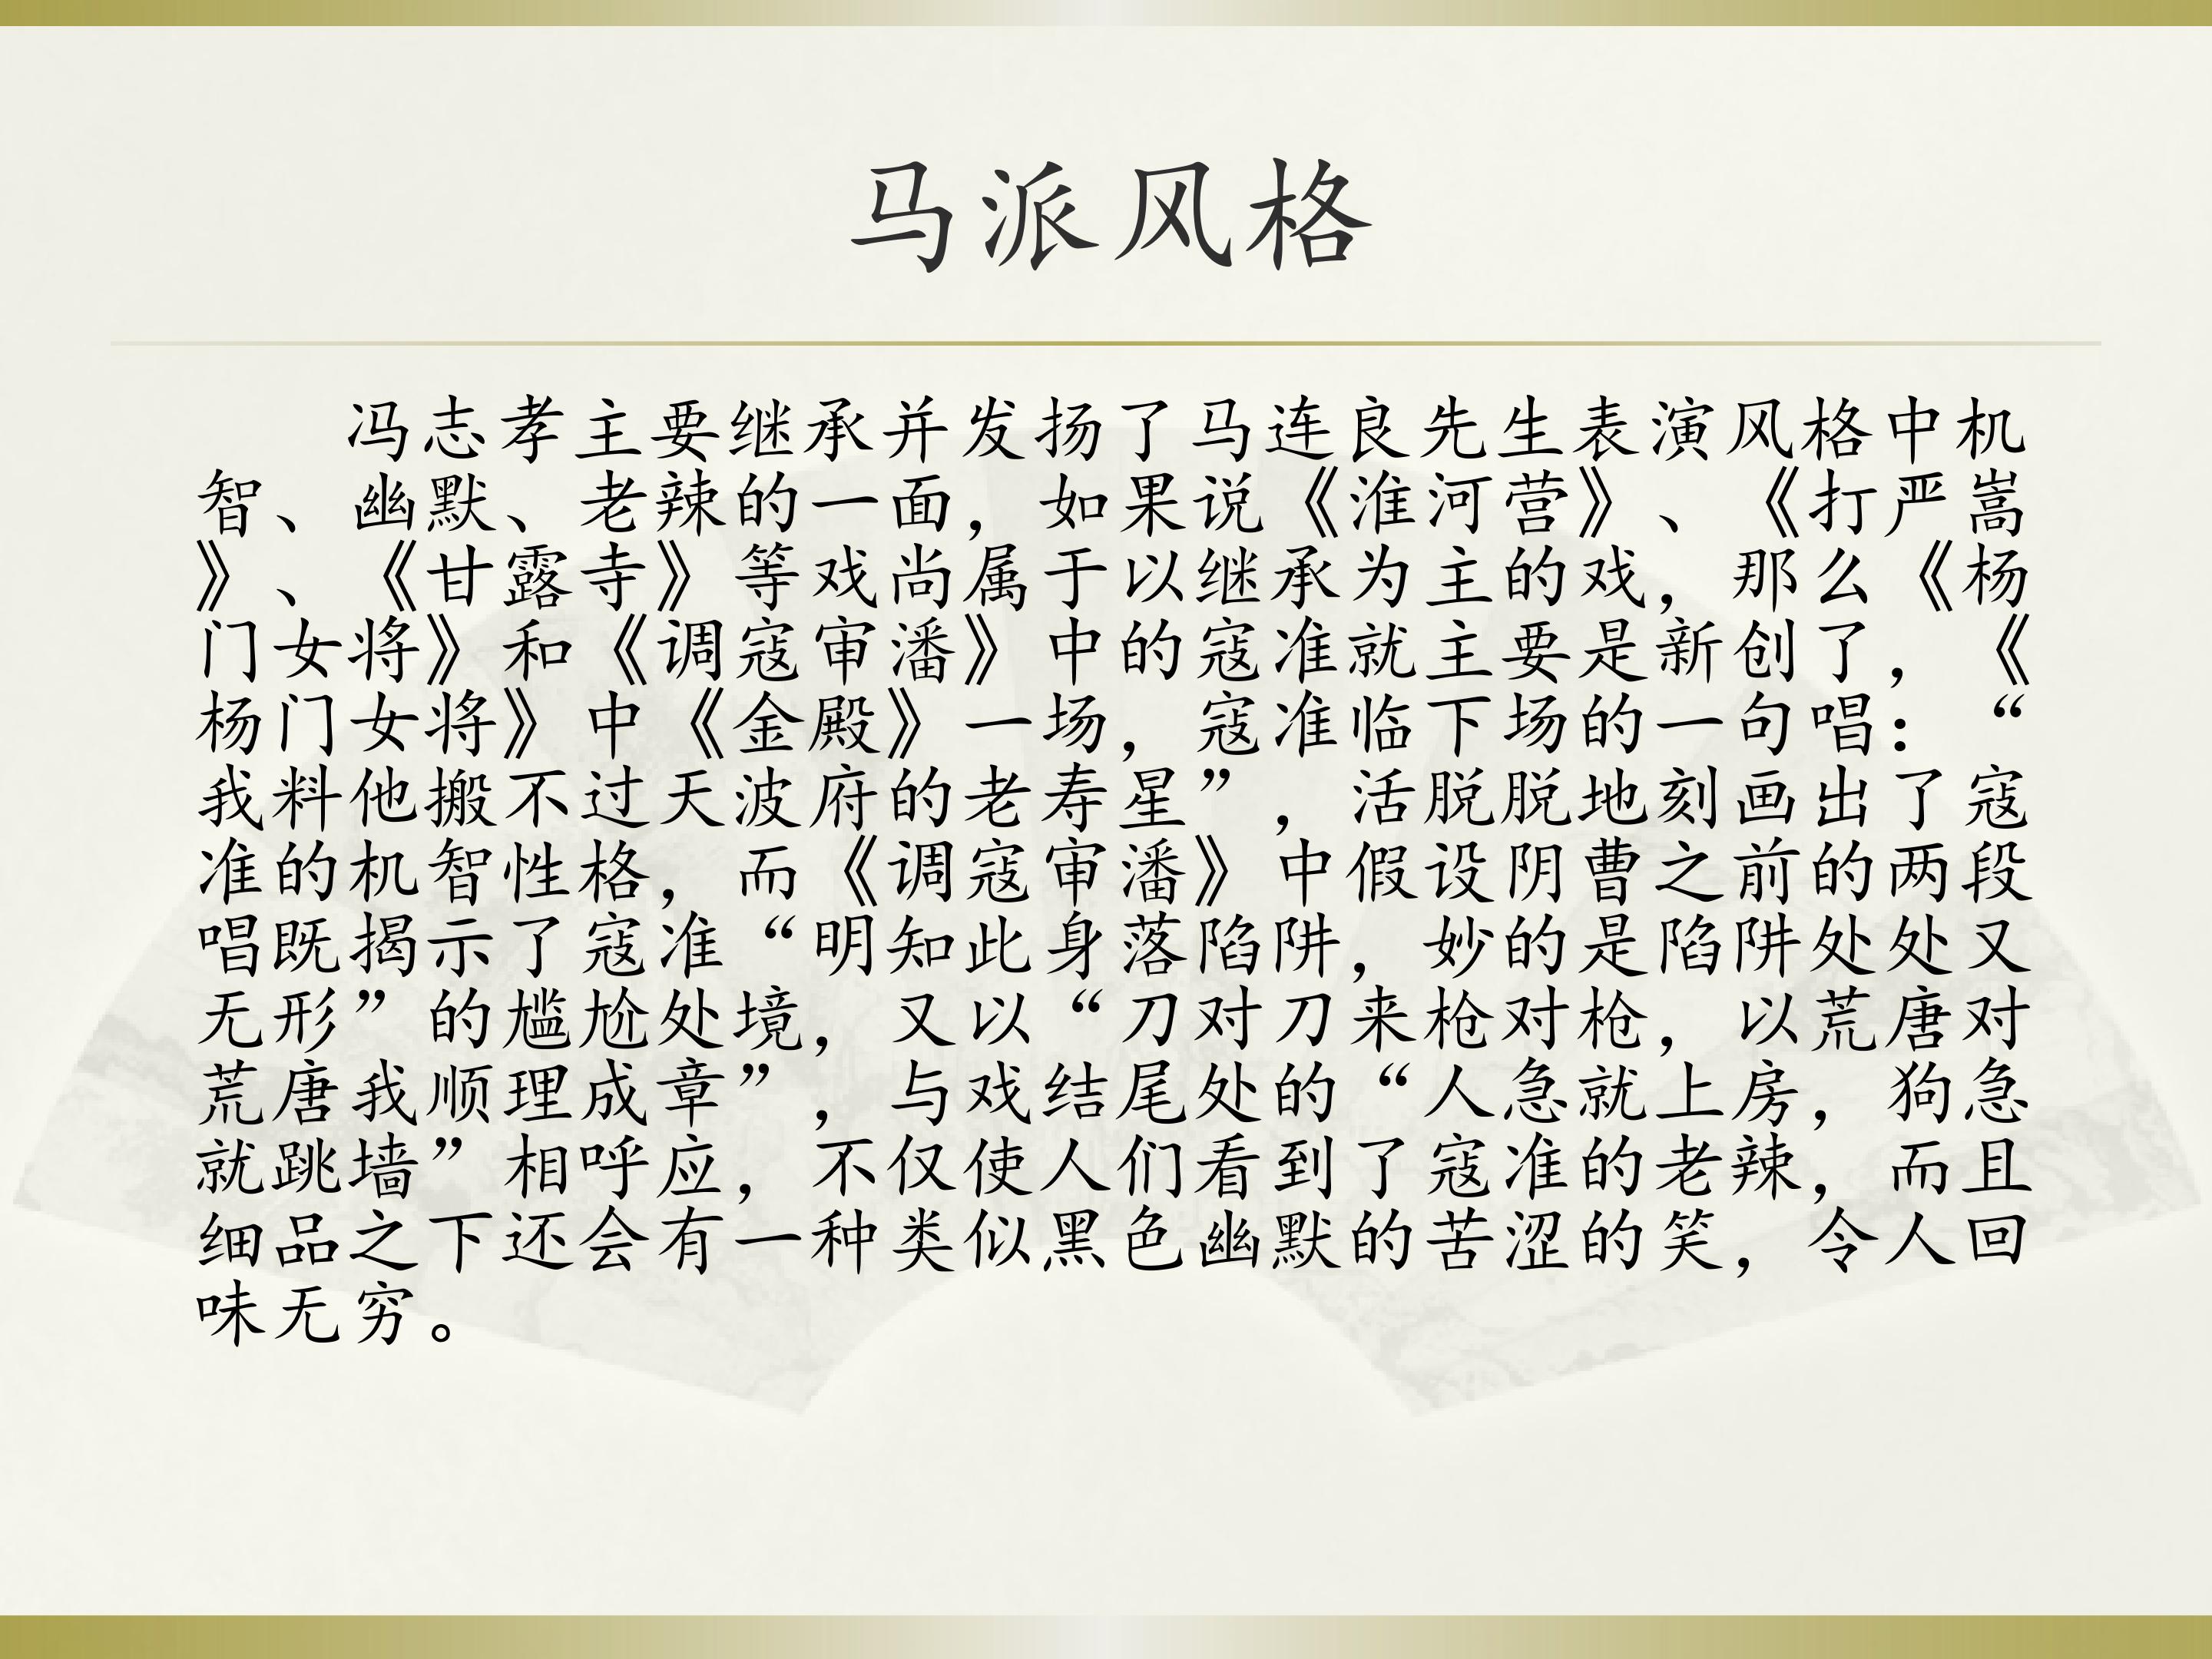 马派风格
冯志孝主要继承并发扬了马连良先生表演风格中机
智、幽默、老辣的一面，如果说《淮河营》、《打严嵩
》、《甘露寺》等戏尚属于以继承为主的戏，那么《杨
门女将》和《调寇审潘》中的寇准就主要是新创了，《
杨门女将》中《金殿》一场，寇准临下场的一句唱：“
我料他搬不过天波府的老寿星”，活脱脱地刻画出了寇
准的机智性格，而《调寇审潘》中假设阴曹之前的两段
唱既揭示了寇准“明知此身落陷阱，妙的是陷阱处处又
无形”的尴尬处境，又以“刀对刀来枪对枪，以荒唐对
荒唐我顺理成章”，与戏结尾处的“人急就上房，狗急
就跳墙”相呼应，不仅使人们看到了寇准的老辣，而且
细品之下还会有一种类似黑色幽默的苦涩的笑，令人回
味无穷。